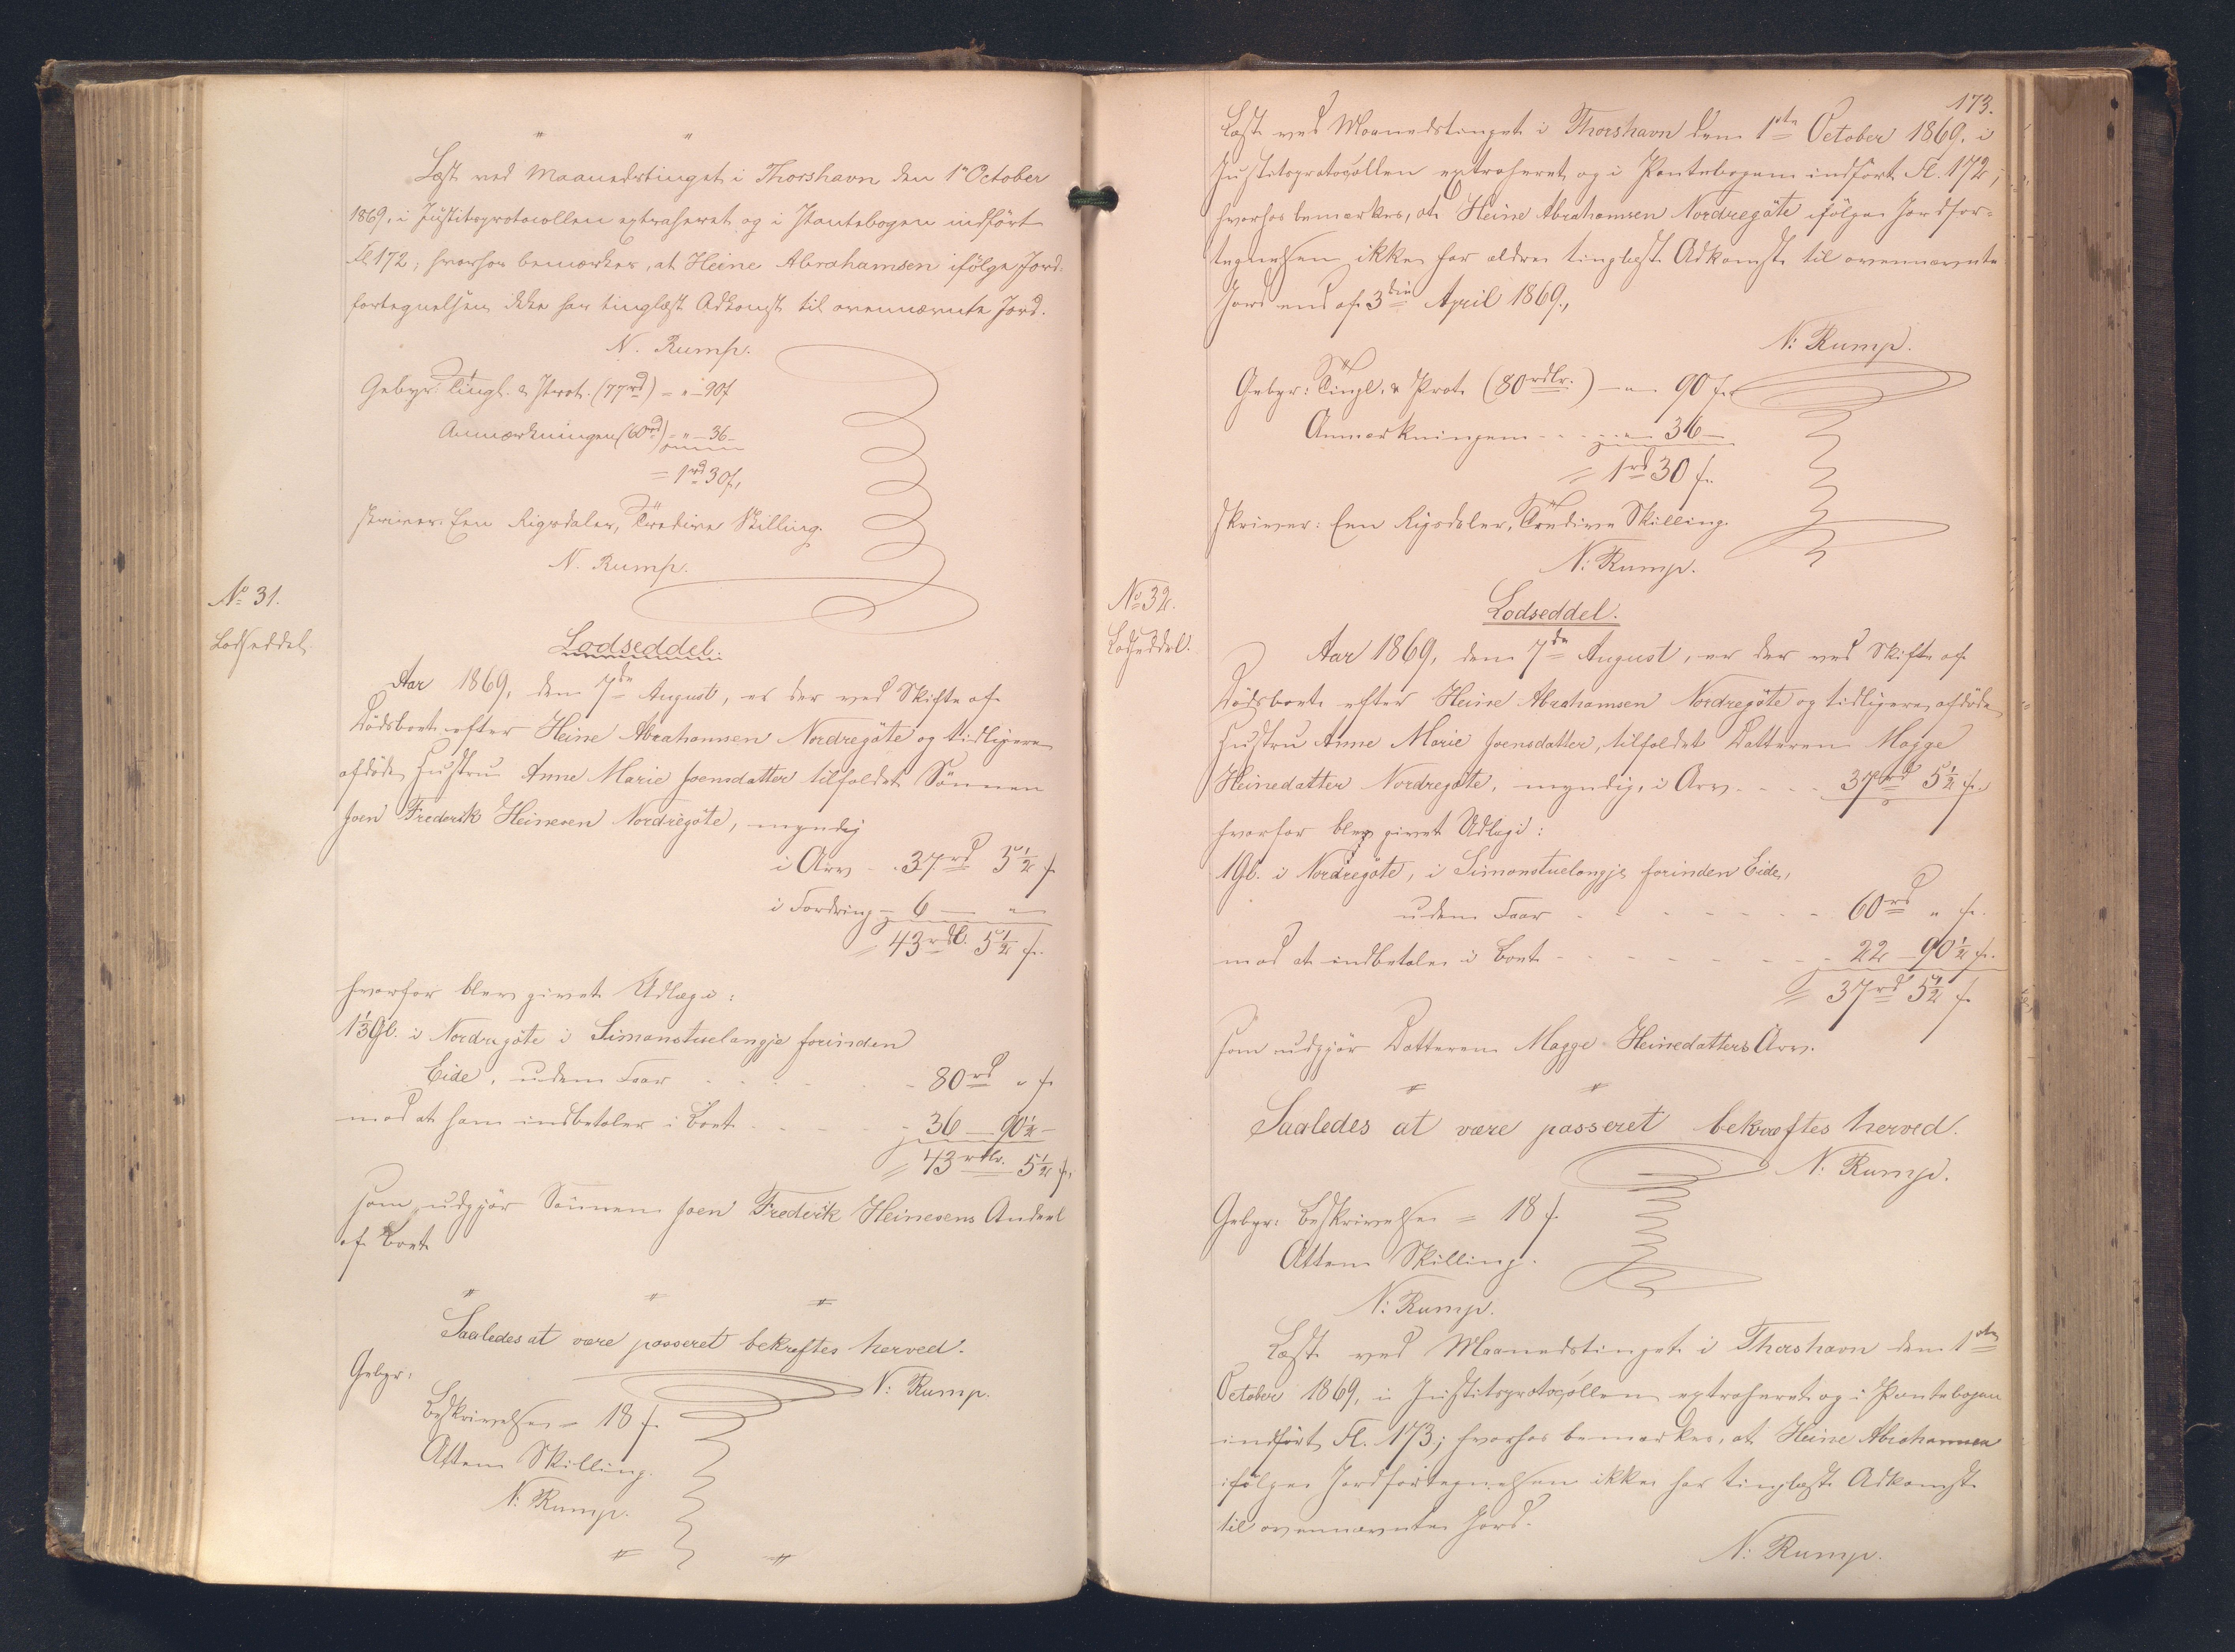 " "
Læst ved Maanedstinget i Thorshavn den 1ste October
1869, i Justitsprotocollen extraheret og i Pantebogen indført
Fl. 172; hvorhos bemærkes, at Heine Abrahamsen ifølge Jord-
fortegnelsen ikke har tinglæst Adkomst til ovennævnte Jord.
N. Rump.
Gebyr: Tingl. & Prot. (77rd) = " – 90 ſ
Anmærkningen (60rd) = " – 36 –
= 1rd 30 ſ,
skriver: Een Rigsdaler, Tredive Skilling.
N. Rump.
No 31.
Lodseddel.
Lodseddel.
Aar 1869, den 7de August, er der ved Skifte af
Dödsboet efter Heine Abrahamsen Nordregöte og tidligere
afdöde Hustru Anne Marie Joensdatter tilfaldet Sönnen
Joen Frederik Heinesen Nordregöte, myndig
i Arv - . 37rd 5½ ſ
i Fordring = 6 — "
= 43rdl. 5½ ſ.
hvorfor blev givet Udlæg i:
1⅓ Gl. i Nordregöte i Simonstuelangje forinden
Eide, uden Faar - - - - - 80rd " ſ
mod at han indbetaler i Boet - - - - 36 – 90½ –
= 43rdlr. 5½ ſ,
som udgjör Sönnen Joen Frederik Heinesens Andeel
af Boet
" " "
Saaledes at være passeret bekræftes herved.
N: Rump.
Gebyr:
Beskrivelsen = 18 ſ.
Atten Skilling.
N: Rump.
" "
173.
Læst ved Maanedstinget i Thorshavn den 1ste October 1869, i
Justitsprotocollen extraheret og i Pantebogen indfört Fl. 172;
hvorhos bemærkes, at Heine Abrahamsen Nordregöte ifölge Jordfor-
tegnelsen ikke har ældre tinglæst Adkomst til ovennævnte
Jord end af 3die April 1869.,
N: Rump.
Gebyr: Tingl. & Prot. (80rdlr.) — " — 90 ſ.
Anmærkningen - - - " — 36 —
= 1rd 30 ſ.
skriver: Een Rigsdaler, Tredive Skilling.
N: Rump.
No 32.
Lodseddel.
Lodseddel.
Aar 1869, den 7de August, er der ved Skifte af
Dödsboet efter Heine Abrahamsen Nordregöte og tidligere afdöde
Hustru Anne Marie Joensdatter, tilfaldet Datteren Magge
Heinedatter Nordregöte, myndig, i Arv - - - - 37rd 5½ ſ.
hvorfor blev givet Udlæg i:
1 Gl. i Nordregöte, i Simonstuelangje forinden Eide,
uden Faar - - - - - - - 60rd " ſ.
mod at indbetale i Boet - - - - - - - 22 – 90½ ſ.
= 37rd 5½ ſ.
som udgjör Datteren Magge Heinedatters Arv.
" "
Saaledes at være passeret bekræftes herved.
N: Rump.
Gebyr: Beskrivelsen = 18 ſ.
Atten Skilling.
N: Rump.
Læst ved Maanedstinget i Thorshavn den 1ste
October 1869, i Justitsprotocollen extraheret og i Pantebogen
indfört Fl. 173; hvorhos bemærkes, at Heine Abrahamsen
ifölge Jordfortegnelsen ikke har tinglæst Adkomst
til ovennævnte Jord.
N: Rump.